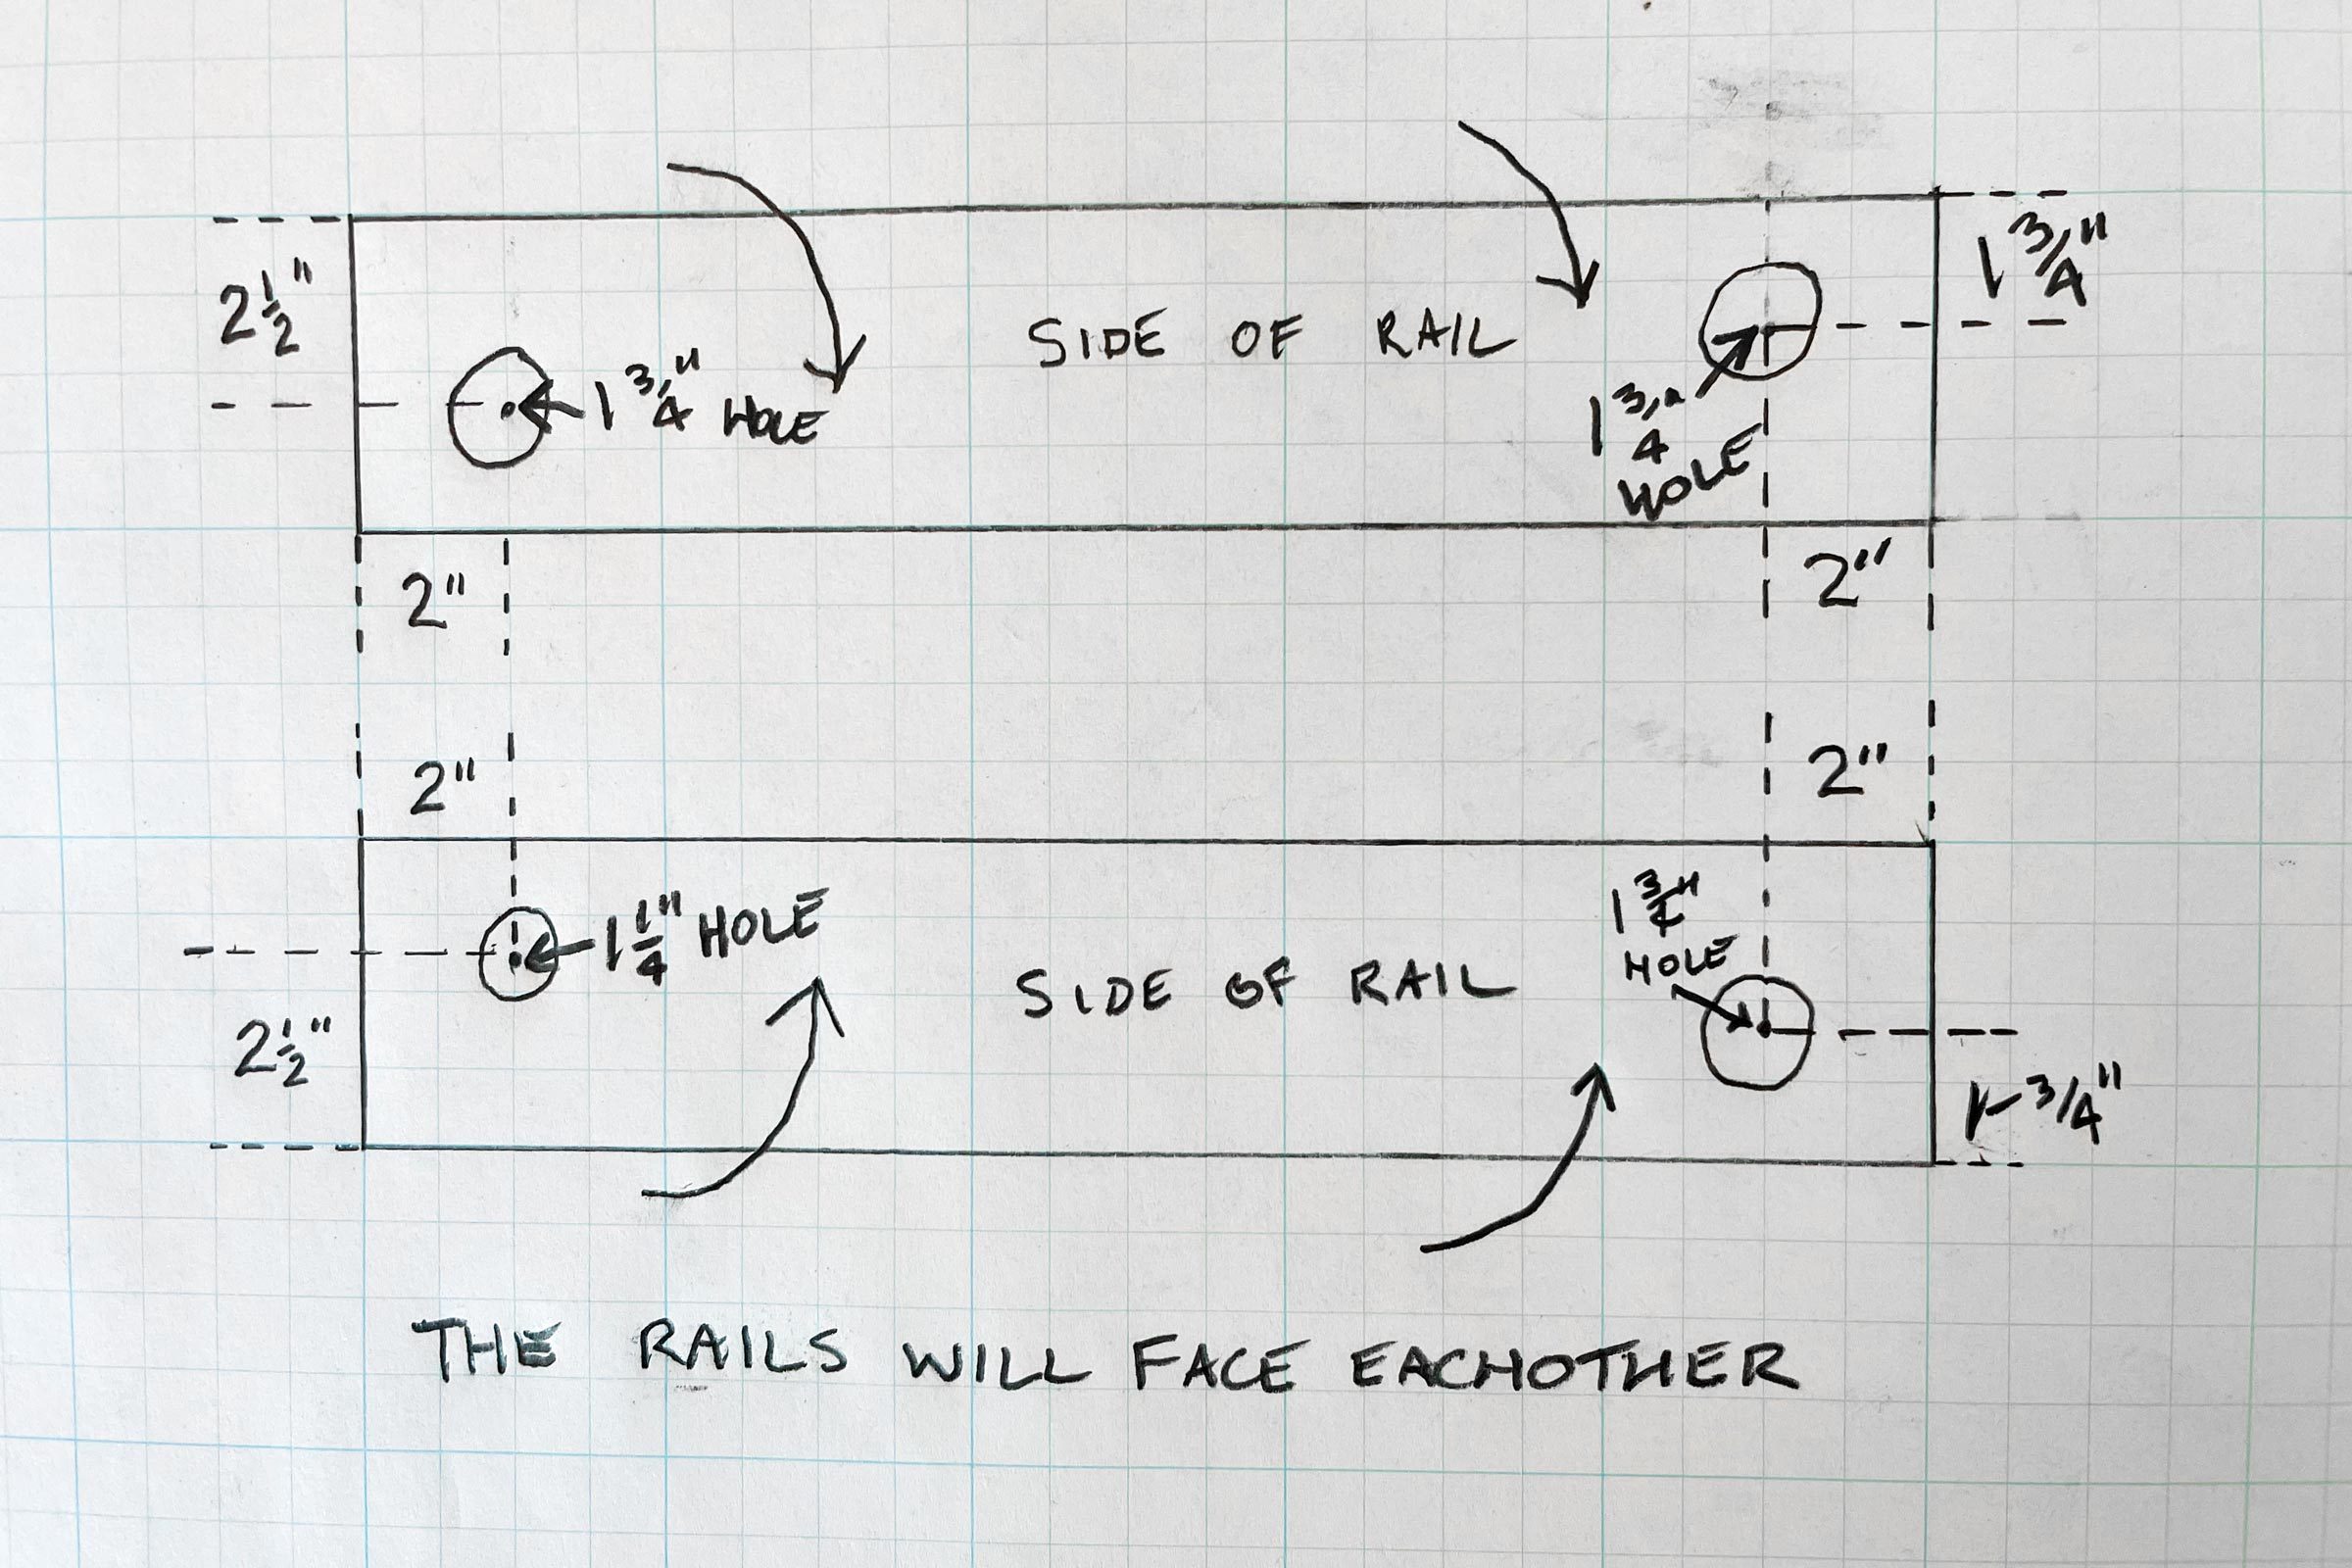 2 1/2"
1 3/4"
SIDE OF RAIL
1 3/4" HOLE
1 3/4"
HOLE
2"
2"
2"
2"
1 1/4" HOLE
1 3/4"
HOLE
SIDE OF RAIL
2 1/2"
1-3/4"
THE RAILS WILL FACE EACHOTHER